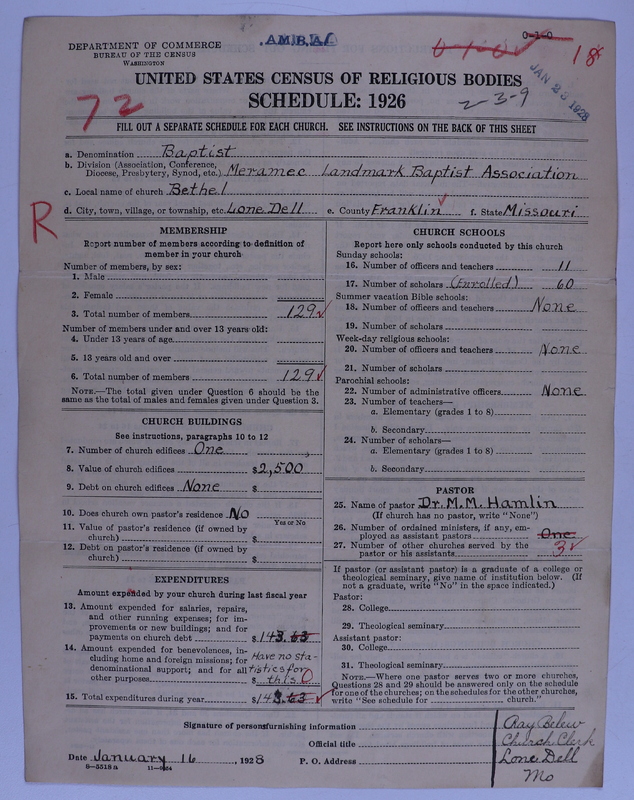 A.M.B.A.
DEPARTMENT OF COMMERCE
BUREAU OF THE CENSUS
WASHINGTON
0-1-0
0-1-0
18
JAN 23 1928
UNITED STATES CENSUS OF RELIGIOUS BODIES
SCHEDULE: 1926
72
2-3-9
FILL OUT A SEPARATE SCHEDULE FOR EACH CHURCH. SEE INSTRUCTIONS ON THE BACK OF THIS SHEET
a. Denomination Baptist
b. Division (Association, Conference,
Diocese, Presbytery, Synod, etc.) Meramec Landmark Baptist Association
c. Local name of church Bethel
d. City, town, village, or township, etc. Lone Dell e. County Franklin f. State Missouri
R
MEMBERSHIP
Report number of members according to definition of
member in your church
Number of members, by sex:
1. Male
2. Female
3. Total number of members 129
Number of members under and over 13 years old:
4. Under 13 years of age
5. 13 years old and over
6. Total number of members 129
NOTE.—The total given under Question 6 should be the
same as the total of males and females given under Question 3.
CHURCH BUILDINGS
See instructions, paragraphs 10 to 12
7. Number of church edifices One
8. Value of church edifices $2,500
9. Debt on church edifices None $
10. Does church own pastor's residence? No
Yes or No
11. Value of pastor's residence (if owned by
church) $
12. Debt on pastor's residence (if owned by
church) $
EXPENDITURES
Amount expended by your church during last fiscal year
13. Amount expended for salaries, repairs,
and other running expenses; for im-
provements or new buildings; and for
payments on church debt $143.63
14. Amount expended for benevolences, in-
cluding home and foreign missions; for
denominational support; and for all
other purposes $
Have no sta-
tistics for
this. 0
15. Total expenditures during year $143.63
CHURCH SCHOOLS
Report here only schools conducted by this church
Sunday schools:
16. Number of officers and teachers 11
17. Number of scholars (Enrolled) 60
Summer vacation Bible schools:
18. Number of officers and teachers None
19. Number of scholars
Week-day religious schools:
20. Number of officers and teachers None
21. Number of scholars
Parochial schools:
22. Number of administrative officers None
23. Number of teachers—
a. Elementary (grades 1 to 8)
b. Secondary
24. Number of scholars—
a. Elementary (grades 1 to 8)
b. Secondary
PASTOR
25. Name of pastor Dr. M. M. Hamlin
(If church has no pastor, write "None")
26. Number of ordained ministers, if any, em-
ployed as assistant pastors One
27. Number of other churches served by the
pastor or his assistants 3
If pastor (or assistant pastor) is a graduate of a college or
theological seminary, give name of institution below. (If
not a graduate, write "No" in the space indicated.)
Pastor:
28. College
29. Theological seminary
Assistant pastor:
30. College
31. Theological seminary
NOTE.—Where one pastor serves two or more churches,
Questions 28 and 29 should be answered only on the schedule
for one of the churches; on the schedules for the other churches,
write "See schedule for church."
Signature of person furnishing information Ray Belew
Official title Church Clerk
Date January 16, 1928 P. O. Address Lone Dell
Mo
8-5518 a